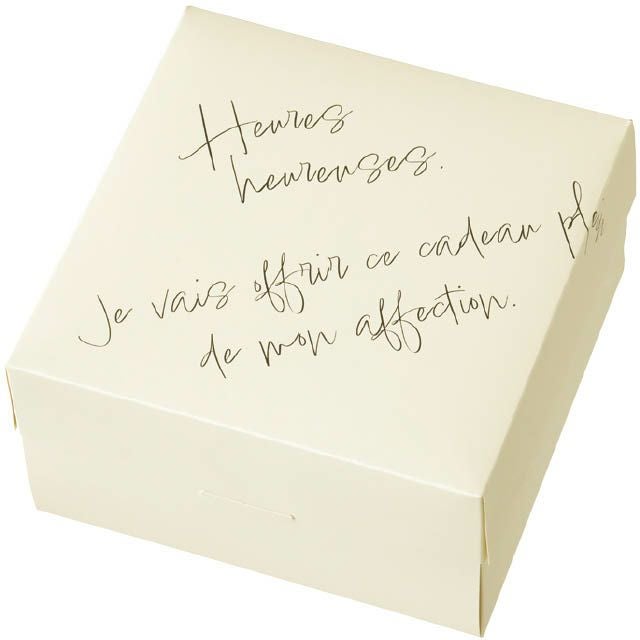 Heures
heureuses.
Je vais offrir ce cadeau
de mon affection.